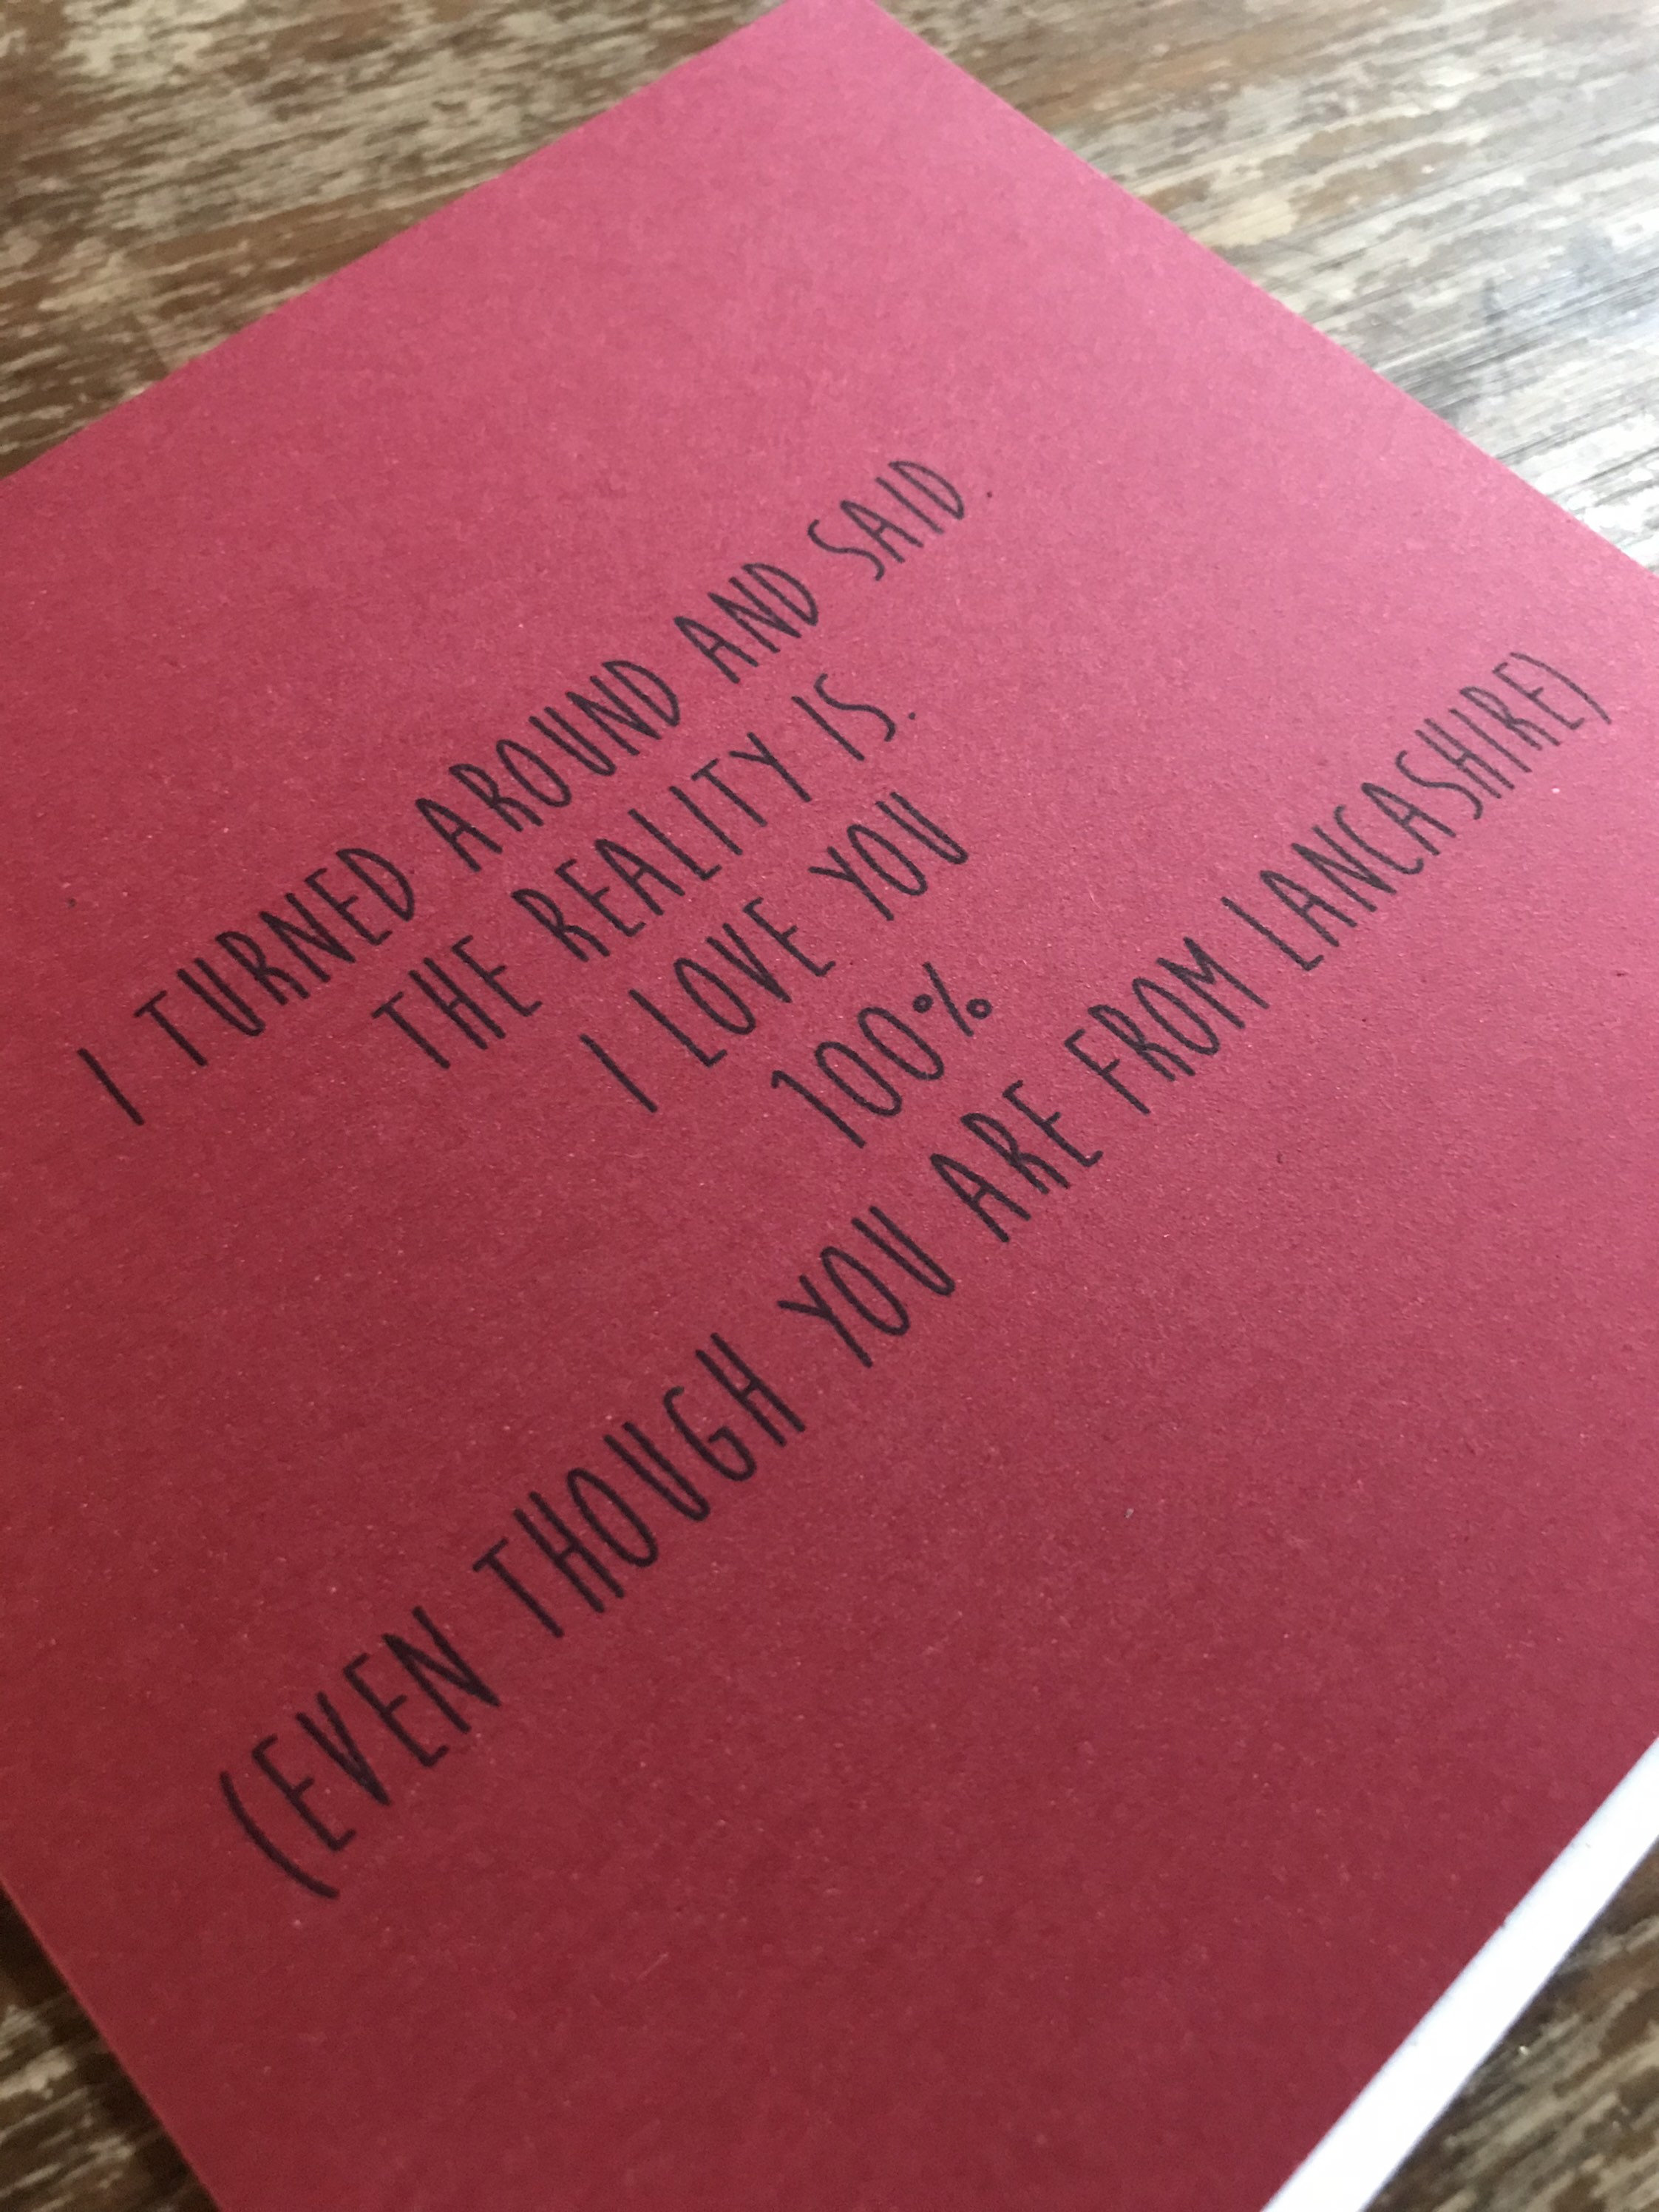 I TURNED AROUND AND SAID
THE REALITY IS.
I LOVE YOU
100%
(EVEN THOUGH YOU ARE FROM LANCASHIRE)